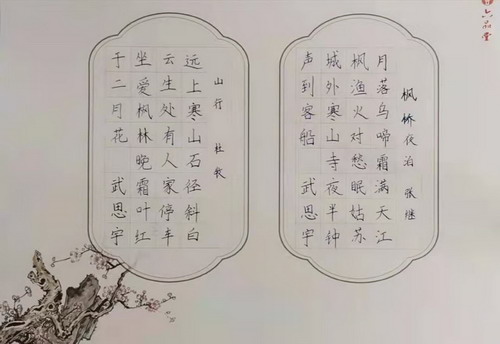 六品堂
枫桥夜泊 张继
月落乌啼霜满天江
枫渔火对愁眠姑苏
城外寒山寺夜半钟
声到客船 武思宇
山行 杜牧
远上寒山石径斜白
云生处有人家停车
坐爱枫林晚霜叶红
于二月花 武思宇